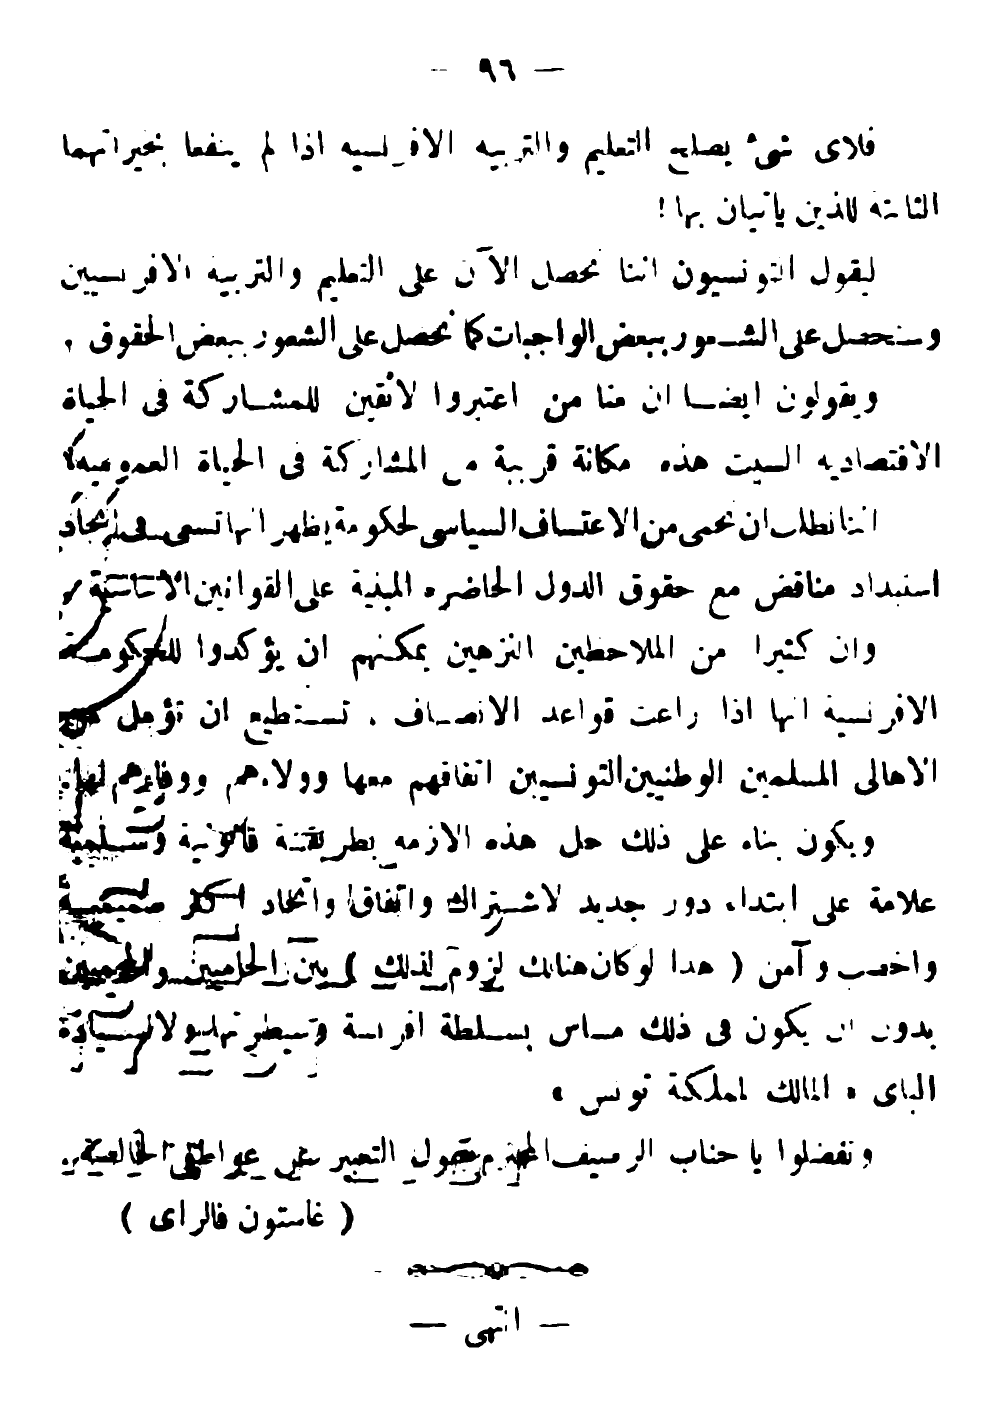 — ٩٦ —
فلاى شىء يصلح التعليم والتربيه الافرنسيه اذا لم ينفعا بخيراتهما
الثابتة للذين ياتيان بها !
ليقول التونسيون اننا نحصل الآن على التعليم والتربية الافرنسيين
وسنحصل على الشعور ببعض الواجبات كما نحصل على الشعور ببعض الحقوق .
ويقولون ايضا ان منا من اعتبروا لائقين للمشاركة فى الحياة
الاقتصاديه اليست هذه مكانة قريبة من المشاركة فى الحياة العموميه
اننا نطلب ان نحمى من الاعتساف السياسى لحكومة يظهر انها تسعى فى ايجاد
استبداد مناقض مع حقوق الدول الحاضره المبنية على القوانين الاساسية
وان كثيرا من الملاحظين النزهين يمكنهم ان يؤكدوا للحكومة
الافرنسية انها اذا راعت قواعد الانصاف . تستطيع ان تؤمل من
الاهالى المسلمين الوطنيين التونسيين اتفاقهم معها وولاءهم ووفاءهم لها.
ويكون بناء على ذلك حل هذه الازمه بطريقة قانونية وسلمية
علامة على ابتداء دور جديد لاشتراك واتفاق واتحاد اكثر صميمية
واخصب وآمن ( هذا لو كان هنالك لزوم لذلك ) بين الحاميين والمحميين
بدون ان يكون فى ذلك مساس بسلطة افرنسة وسيطرتها ولا لسيادة
الباى « المالك لمملكة تونس »
وتفضلوا يا جناب الرصيف المحترم بقبول التعبير عن عواطفى الخالصة..
( غاستون فالراى )
— انتهى —